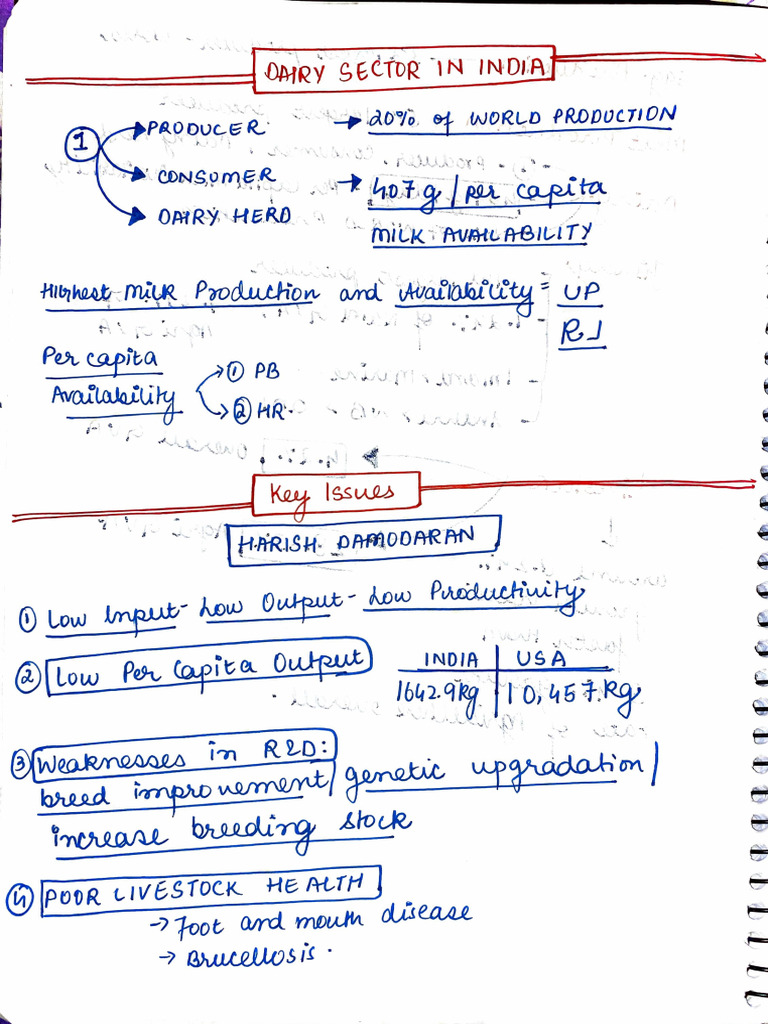 DAIRY SECTOR IN INDIA
1 PRODUCER → 20% of WORLD PRODUCTION
CONSUMER → 407 g / per capita
DAIRY HERD MILK AVAILABILITY
Highest Milk Production and Availability = UP
RJ
Per capita
Availability → ① PB
→ ② HR.
Key Issues
HARISH DAMODARAN
① Low Input - Low Output - Low Productivity
② Low Per Capita Output
INDIA | USA
1642.9kg | 10,457.kg
③ Weaknesses in R&D:
breed improvement / genetic upgradation /
increase breeding stock
④ POOR LIVESTOCK HEALTH
→ Foot and mouth disease
→ Brucellosis.